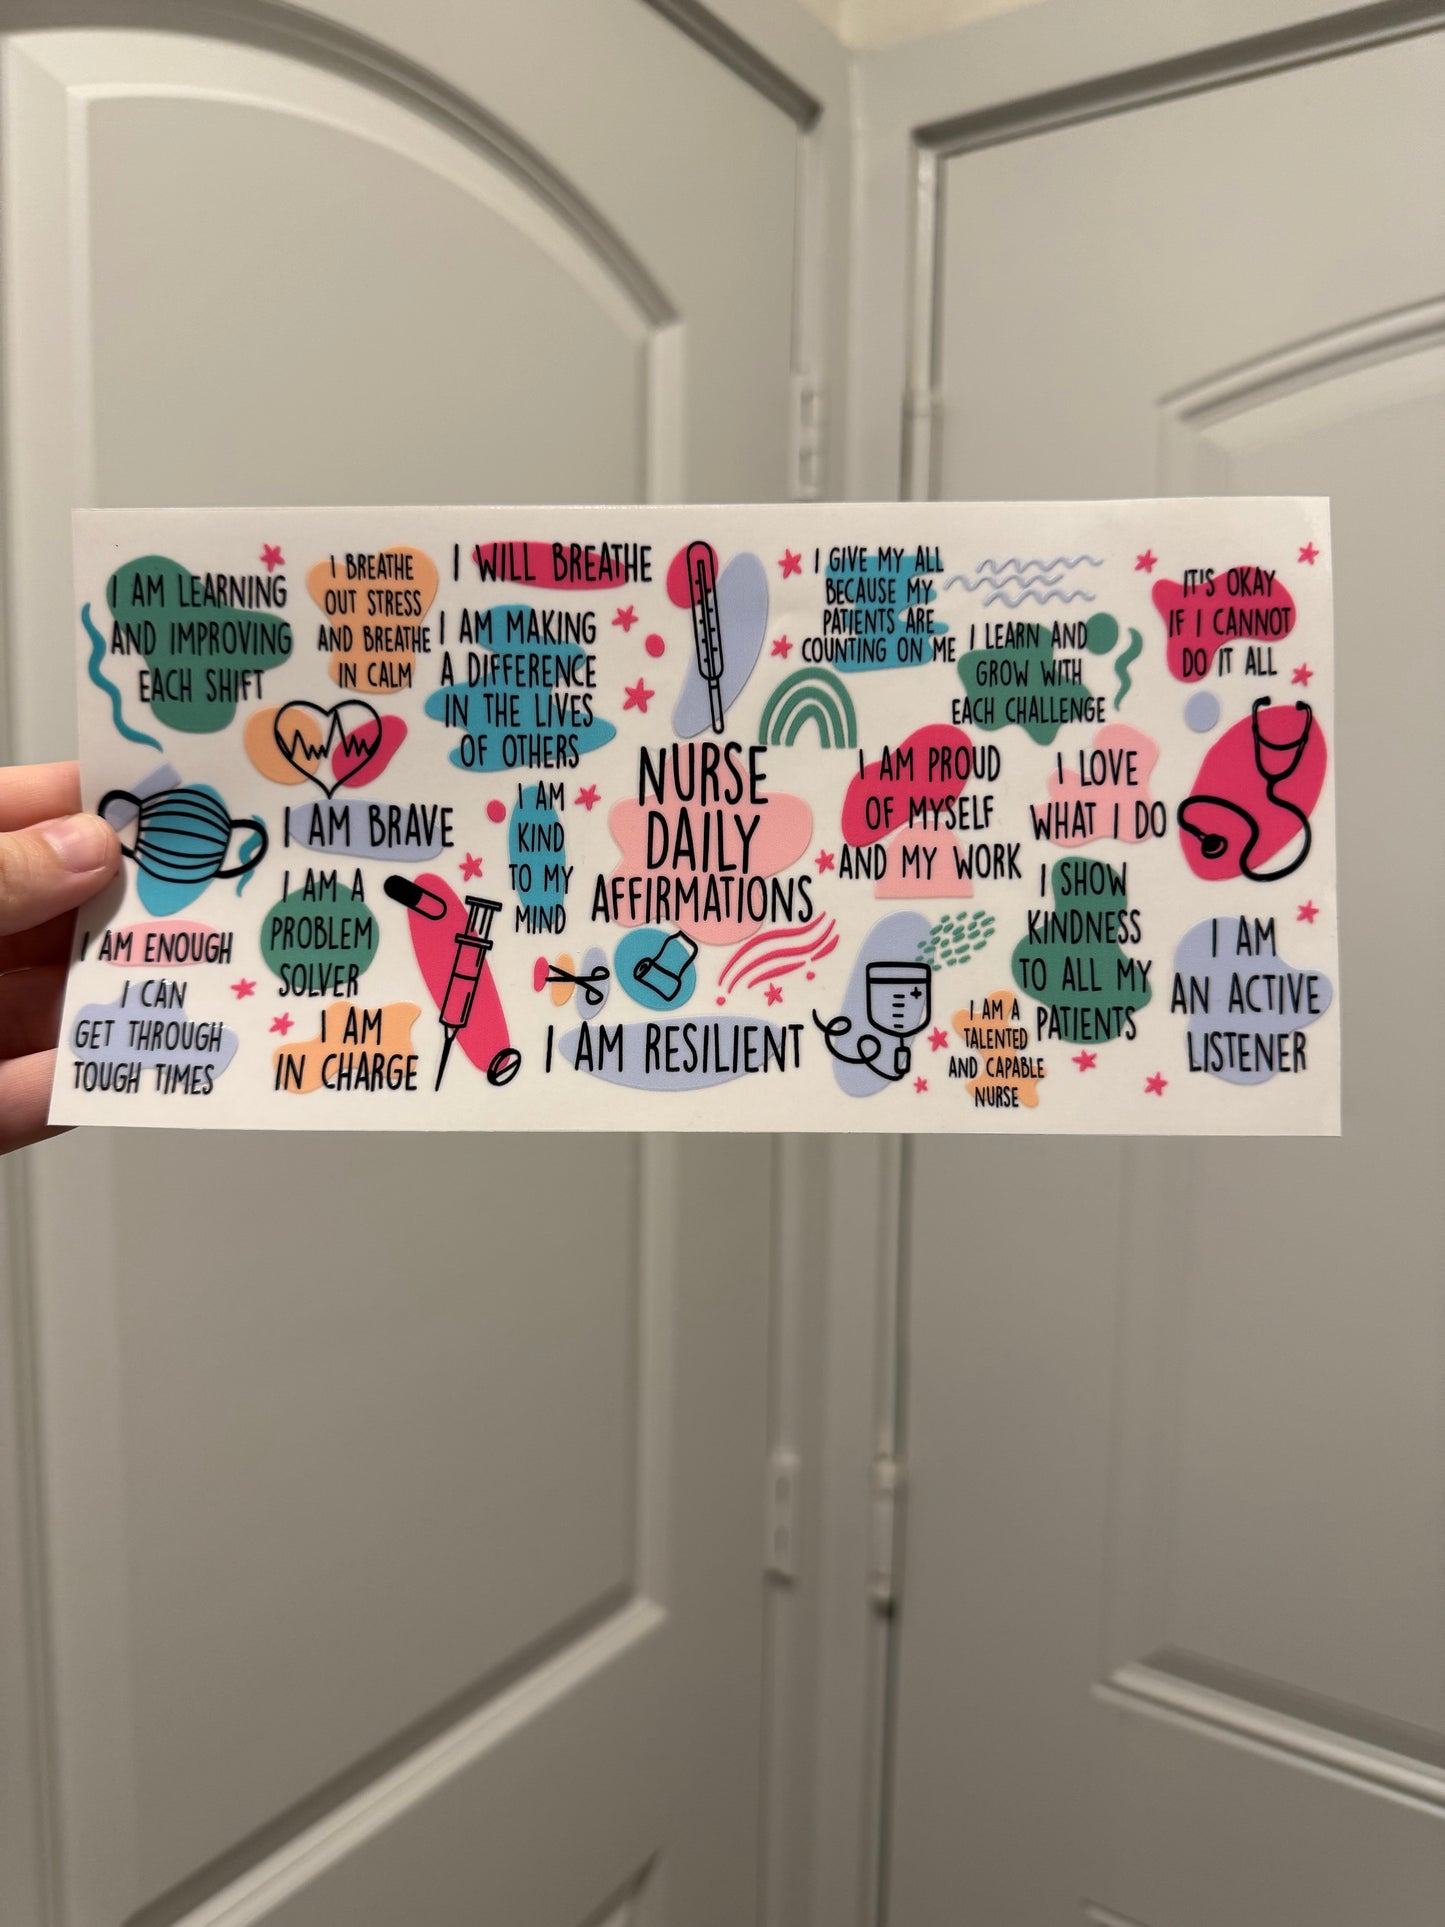 I AM LEARNING
AND IMPROVING
EACH SHIFT
I BREATHE
OUT STRESS
AND BREATHE
IN CALM
I WILL BREATHE
I AM MAKING
A DIFFERENCE
IN THE LIVES
OF OTHERS
I GIVE MY ALL
BECAUSE MY
PATIENTS ARE
COUNTING ON ME
I LEARN AND
GROW WITH
EACH CHALLENGE
IT'S OKAY
IF I CANNOT
DO IT ALL
I AM BRAVE
I AM
KIND
TO MY
MIND
NURSE
DAILY
AFFIRMATIONS
I AM PROUD
OF MYSELF
AND MY WORK
I LOVE
WHAT I DO
I AM ENOUGH
I AM A
PROBLEM
SOLVER
I SHOW
KINDNESS
TO ALL MY
PATIENTS
I AM
AN ACTIVE
LISTENER
I CAN
GET THROUGH
TOUGH TIMES
I AM
IN CHARGE
I AM RESILIENT
I AM A
TALENTED
AND CAPABLE
NURSE